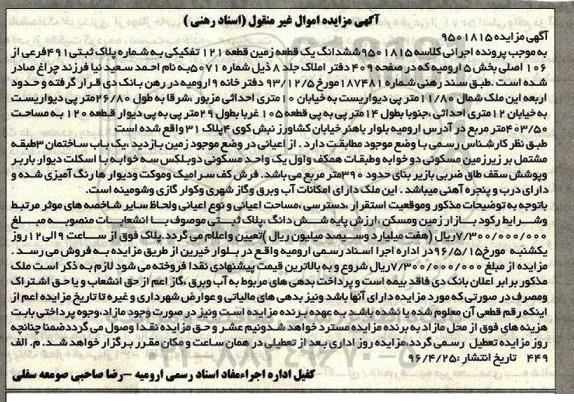 آگهی مزایده اموال غیر منقول (اسناد رهنی )
آگهی مزایده ۹۵۰۱۸۱۵
به موجب پرونده اجرائی کلاسه ۹۵۰۱۸۱۵ ششدانگ یک قطعه زمین قطعه ۱۲۱ تفکیکی به شماره پلاک ثبتی ۴۹۱ فرعی از
۱۰۶ اصلی بخش ۵ ارومیه که در صفحه ۴۰۹ دفتر املاک جلد ۸ ذیل شماره ۵۰۷۱ به نام احمد سعید نیا فرزند چراغ صادر
شده است .طبق سند رهنی شماره ۱۸۷۴۸۱ مورخ ۹۳/۱۲/۵ دفتر خانه ۹ ارومیه در رهن بانک دی قرار گرفته و حدود
اربعه این ملک شمال ۱۱/۸۰ متر پی دیواریست به خیابان ۱۰ متری احداثی مزبور .شرقا به طول ۲۶/۸۰ متر پی دیواریست
به خیابان ۱۲ متری احداثی .جنوبا بطول ۱۴ متر پی به پی قطعه ۱۰۵ غربا بطول ۲۹ متر پی به پی دیوار قطعه ۱۲۰ به مساحت
۴۰۳/۵۰ متر مربع در آدرس ارومیه بلوار باهنر خیابان کشاورز نبش کوی ۴ پلاک ۳۱ واقع شده است
طبق نظر کارشناس رسمی با وضع موجود مطابقت دارد . از اعیانی در وضع موجود زمین بازدید ،یک باب ساختمان ۳ طبقه
مشتمل بر زیرزمین مسکونی دو خوابه وطبقات همکف واول یک واحد مسکونی دوبلکس سه خوابه با اسکلت دیوار باربر
وپوشش سقف طاق ضربی بازیر بنای حدود ۳۹۰ متر مربع می باشد. فرش کف سرامیک وموکت ودیوار ها رنگ آمیزی شده و
دارای درب و پنجره آهنی میباشد . این ملک دارای امکانات آب وبرق وگاز شهری وکولر گازی وشومینه است.
باتوجه به توضیحات مذکور وموقعیت استقرار ،دسترسی ،مساحت اعیانی و نوع اعیانی ولحاظ سایر شاخصه های موثر مرتبط
وشرایط رکود بازار زمین ومسکن ،ارزش پایه شش دانگ ،پلاک ثبتی موصوف با انشعابات منصوبه مبلغ
۷/۳۰۰/۰۰۰/۰۰۰ ریال (هفت میلیارد وسیصد میلیون ریال )تعیین واعلام می گردد.پلاک فوق از ساعت ۹ الی ۱۲ روز
یکشنبه مورخ ۹۶/۵/۱۵ در اداره اجرا اسناد رسمی ارومیه واقع در بلوار خیرین از طریق مزایده به فروش می رسد .
مزایده از مبلغ ۷/۳۰۰/۰۰۰/۰۰۰ ریال شروع و به بالاترین قیمت پیشنهادی نقدا فروخته می شود لازم به ذکر است ملک
مذکور برابر اعلان بانک دی فاقد بیمه است و پرداخت بدهی های مربوط به آب وبرق ،گاز اعم از حق انشعاب و یا حق اشتراک
ومصرف در صورتی که مورد مزایده دارای آنها باشد ونیز بدهی های مالیاتی و عوارض شهرداری و غیره تا تاریخ مزایده اعم از
اینکه رقم قطعی آن معلوم شده یا نشده باشد به عهده برنده مزایده است ونیز در صورت وجود مازاد،وجوه پرداختی بابت
هزینه های فوق از محل مازاد به برنده مزایده مسترد خواهد شدونیم عشر و حق مزایده نقدا وصول می گرددضمنا چنانچه
روز مزایده تعطیل رسمی گردد،مزایده روز اداری بعد از تعطیلی در همان ساعت و مکان مقرر برگزار خواهد شد. م . الف
۴۴۹ تاریخ انتشار :۹۶/۴/۲۵
کفیل اداره اجراءمفاد اسناد رسمی ارومیه –رضا صاحبی صومعه سفلی